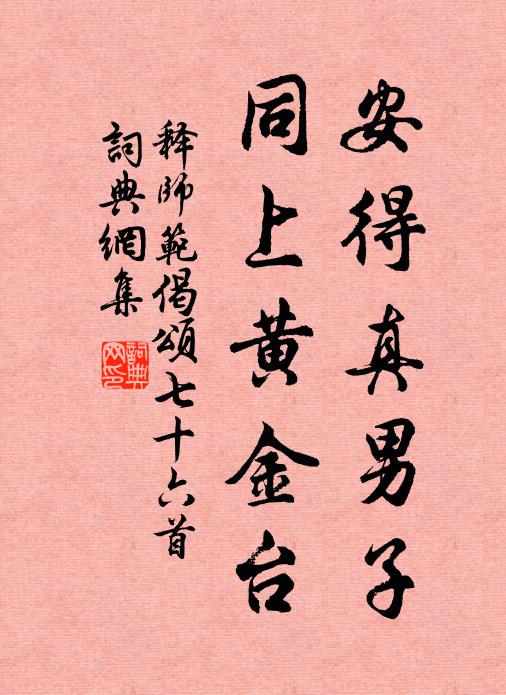 安得真男子
同上黄金台
释师範偈頌七十六首
詞典網集
詞典
网印